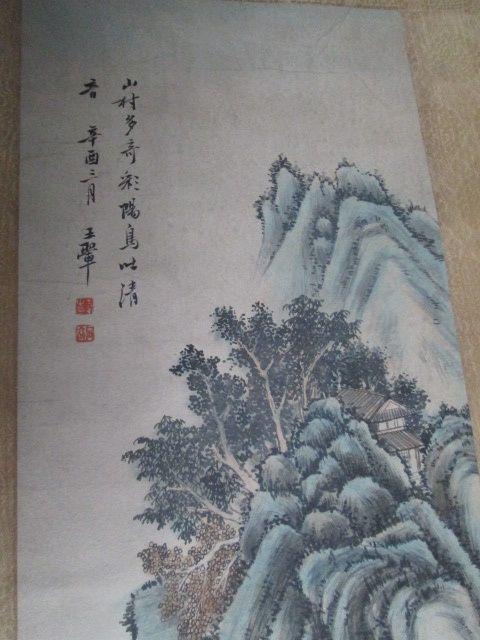 山村多奇彩陽鳥吐清
音 辛酉二月 王翬